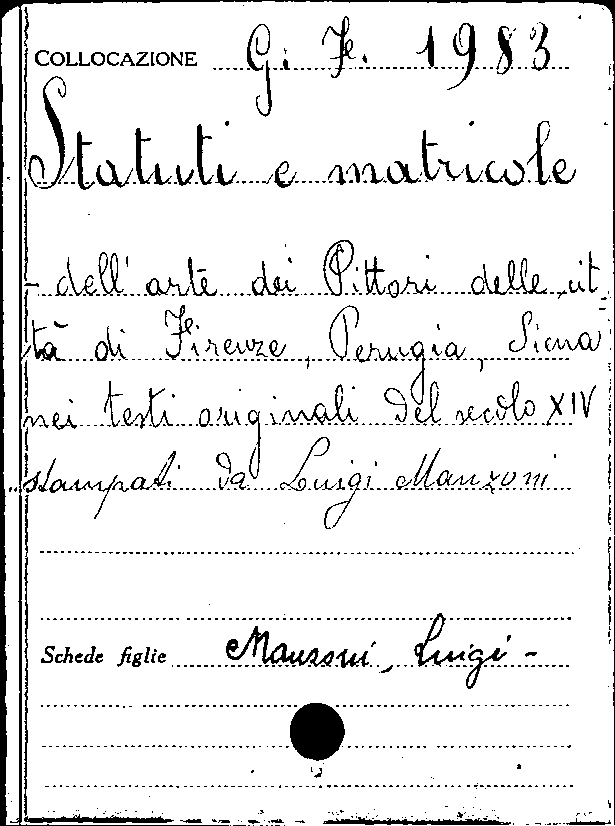 COLLOCAZIONE G. F. 1983
Statuti e matricole
- dell'arte dei Pittori delle cit-
tà di Firenze, Perugia, Siena
nei testi originali del secolo XIV
stampati da Luigi Manzoni
Schede figlie Manzoni, Luigi -